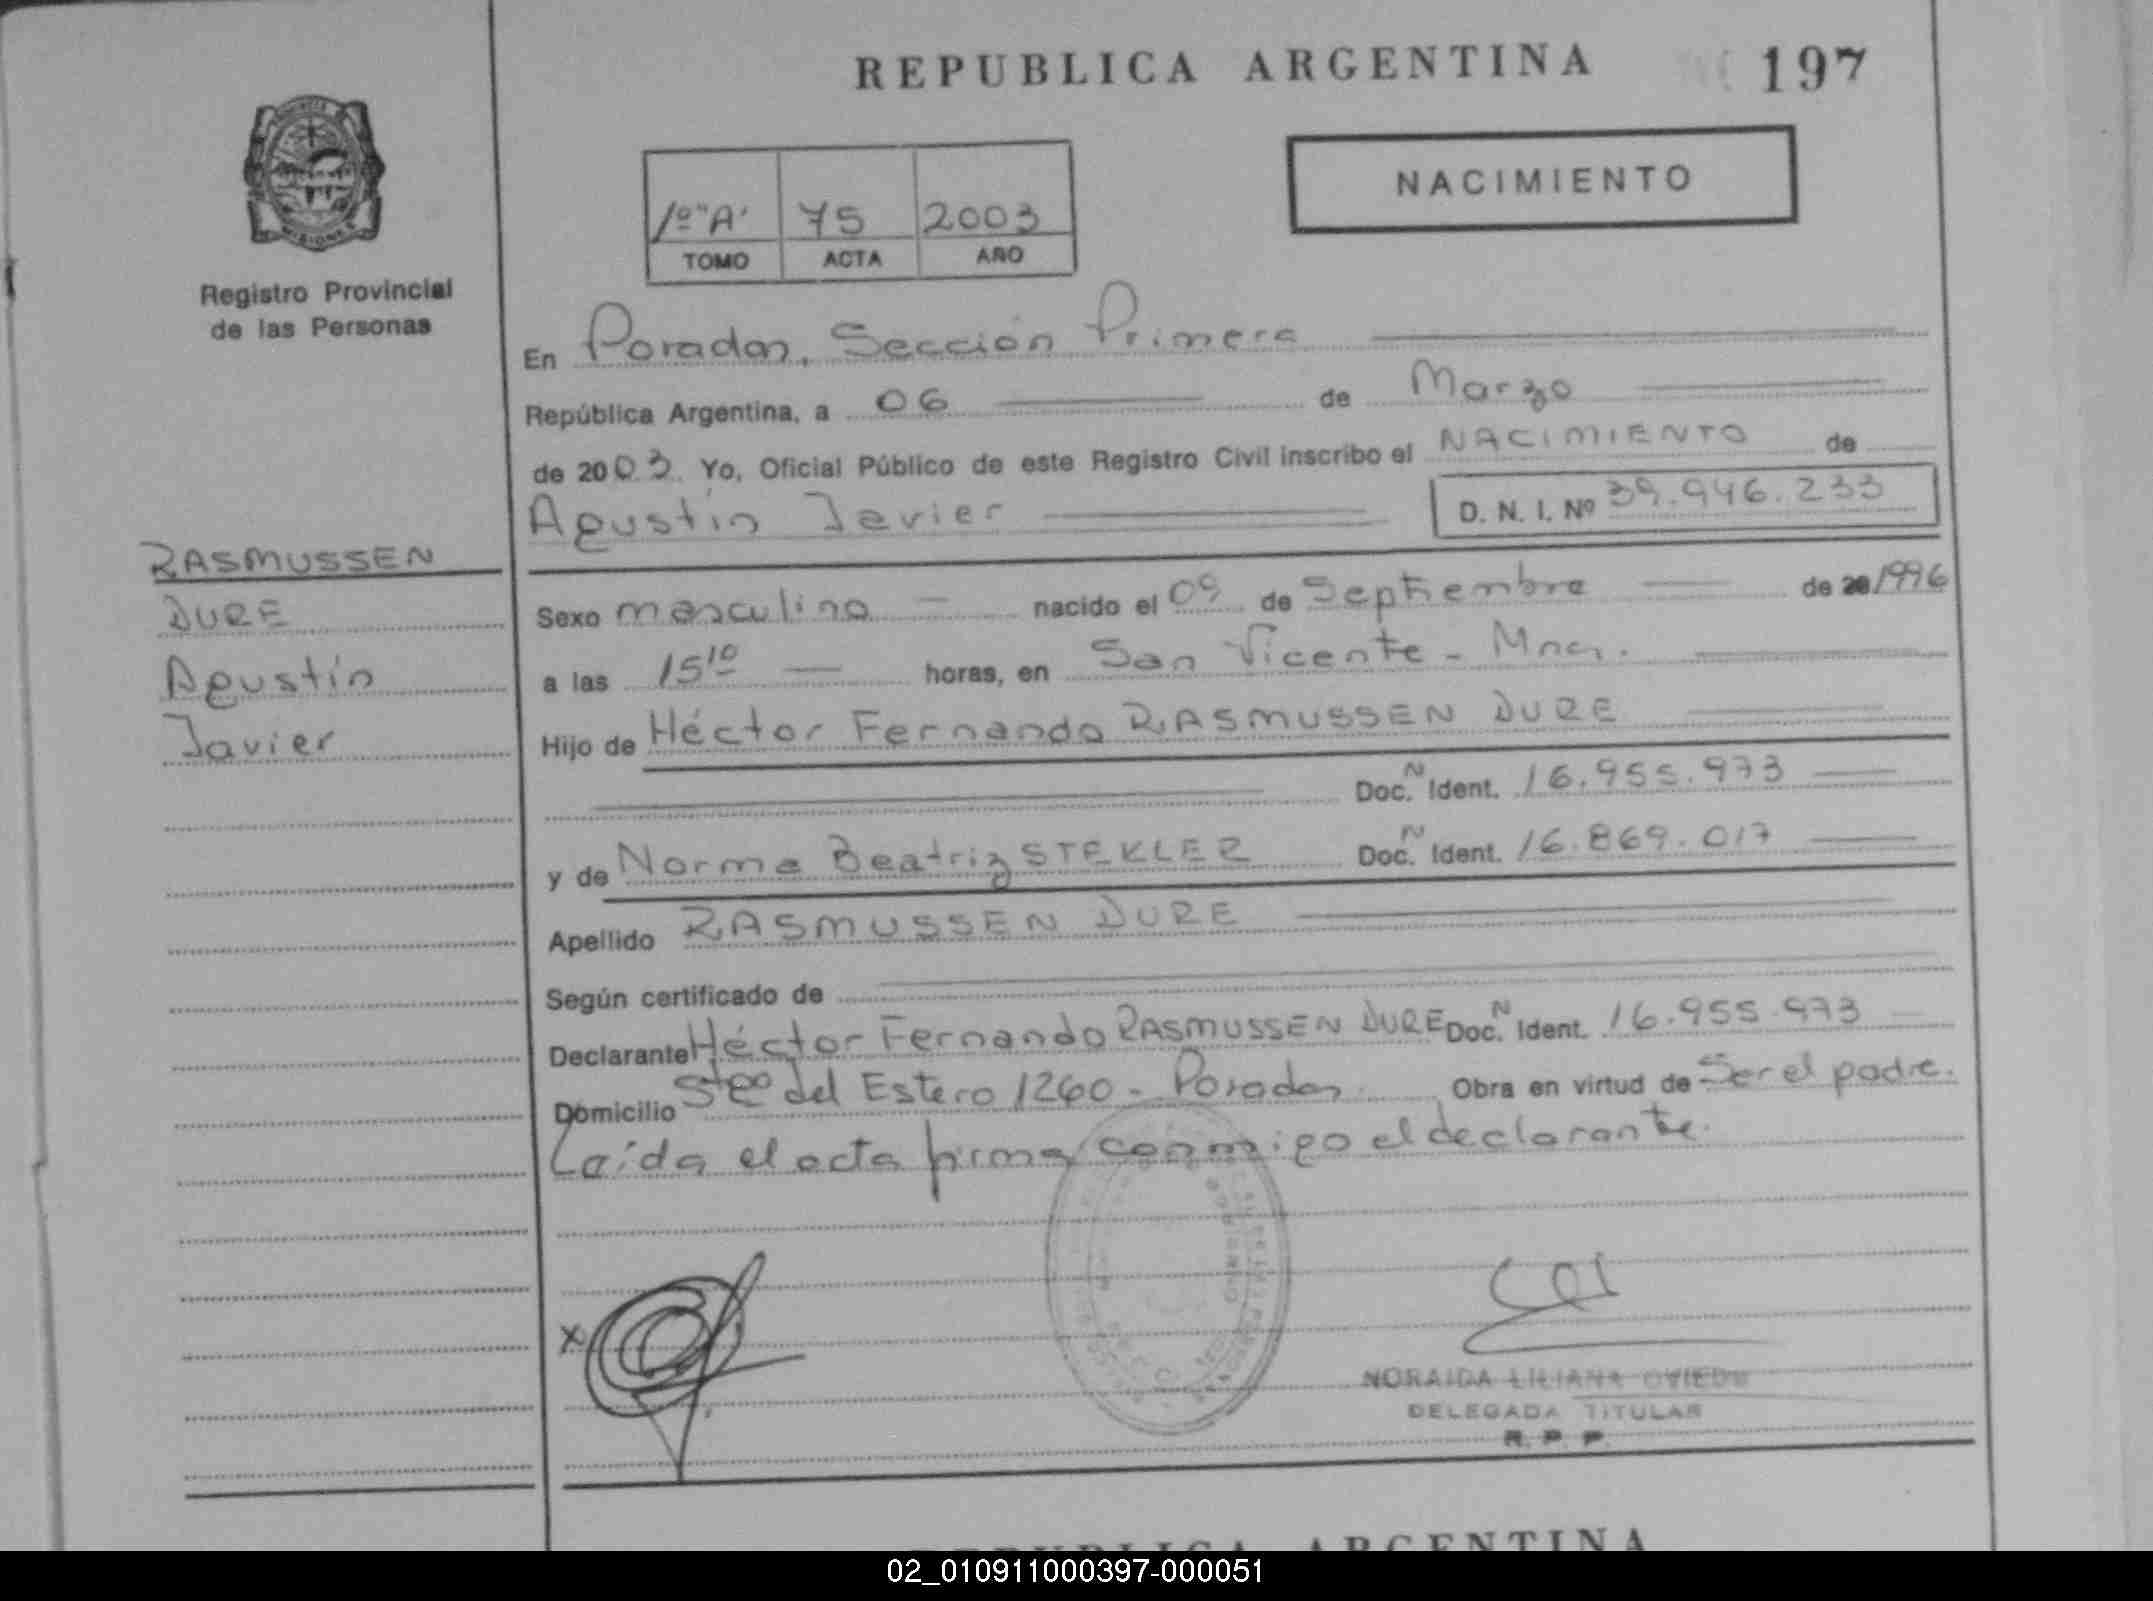 REPUBLICA ARGENTINA
197
1º "A" 75 2003
TOMO ACTA AÑO
NACIMIENTO
MISIONES
Registro Provincial
de las Personas
En Posadas, Sección Primera
República Argentina, a 06 de Marzo
de 2003. Yo, Oficial Público de este Registro Civil inscribo el NACIMIENTO de
Agustín Javier D. N. I. Nº 39.946.233
RASMUSSEN
DURE
Agustín
Javier
Sexo masculino nacido el 09 de Septiembre de 20 1996
a las 15 10 horas, en San Vicente - Mnes.
Hijo de Héctor Fernando RASMUSSEN DURE
Doc. N Ident. 16.955.973
y de Norma Beatriz STEKLER Doc. N Ident. 16.869.017
Apellido RASMUSSEN DURE
Según certificado de
Declarante Héctor Fernando RASMUSSEN DURE Doc. N Ident. 16.955.973
Domicilio Stgo del Estero 1260 - Posadas Obra en virtud de Ser el padre.
Leída el acta firma conmigo el declarante.
x
NORAIDA LILIANA OVIEDO
DELEGADA TITULAR
R. P. P.
REPUBLICA ARGENTINA
02_010911000397-000051